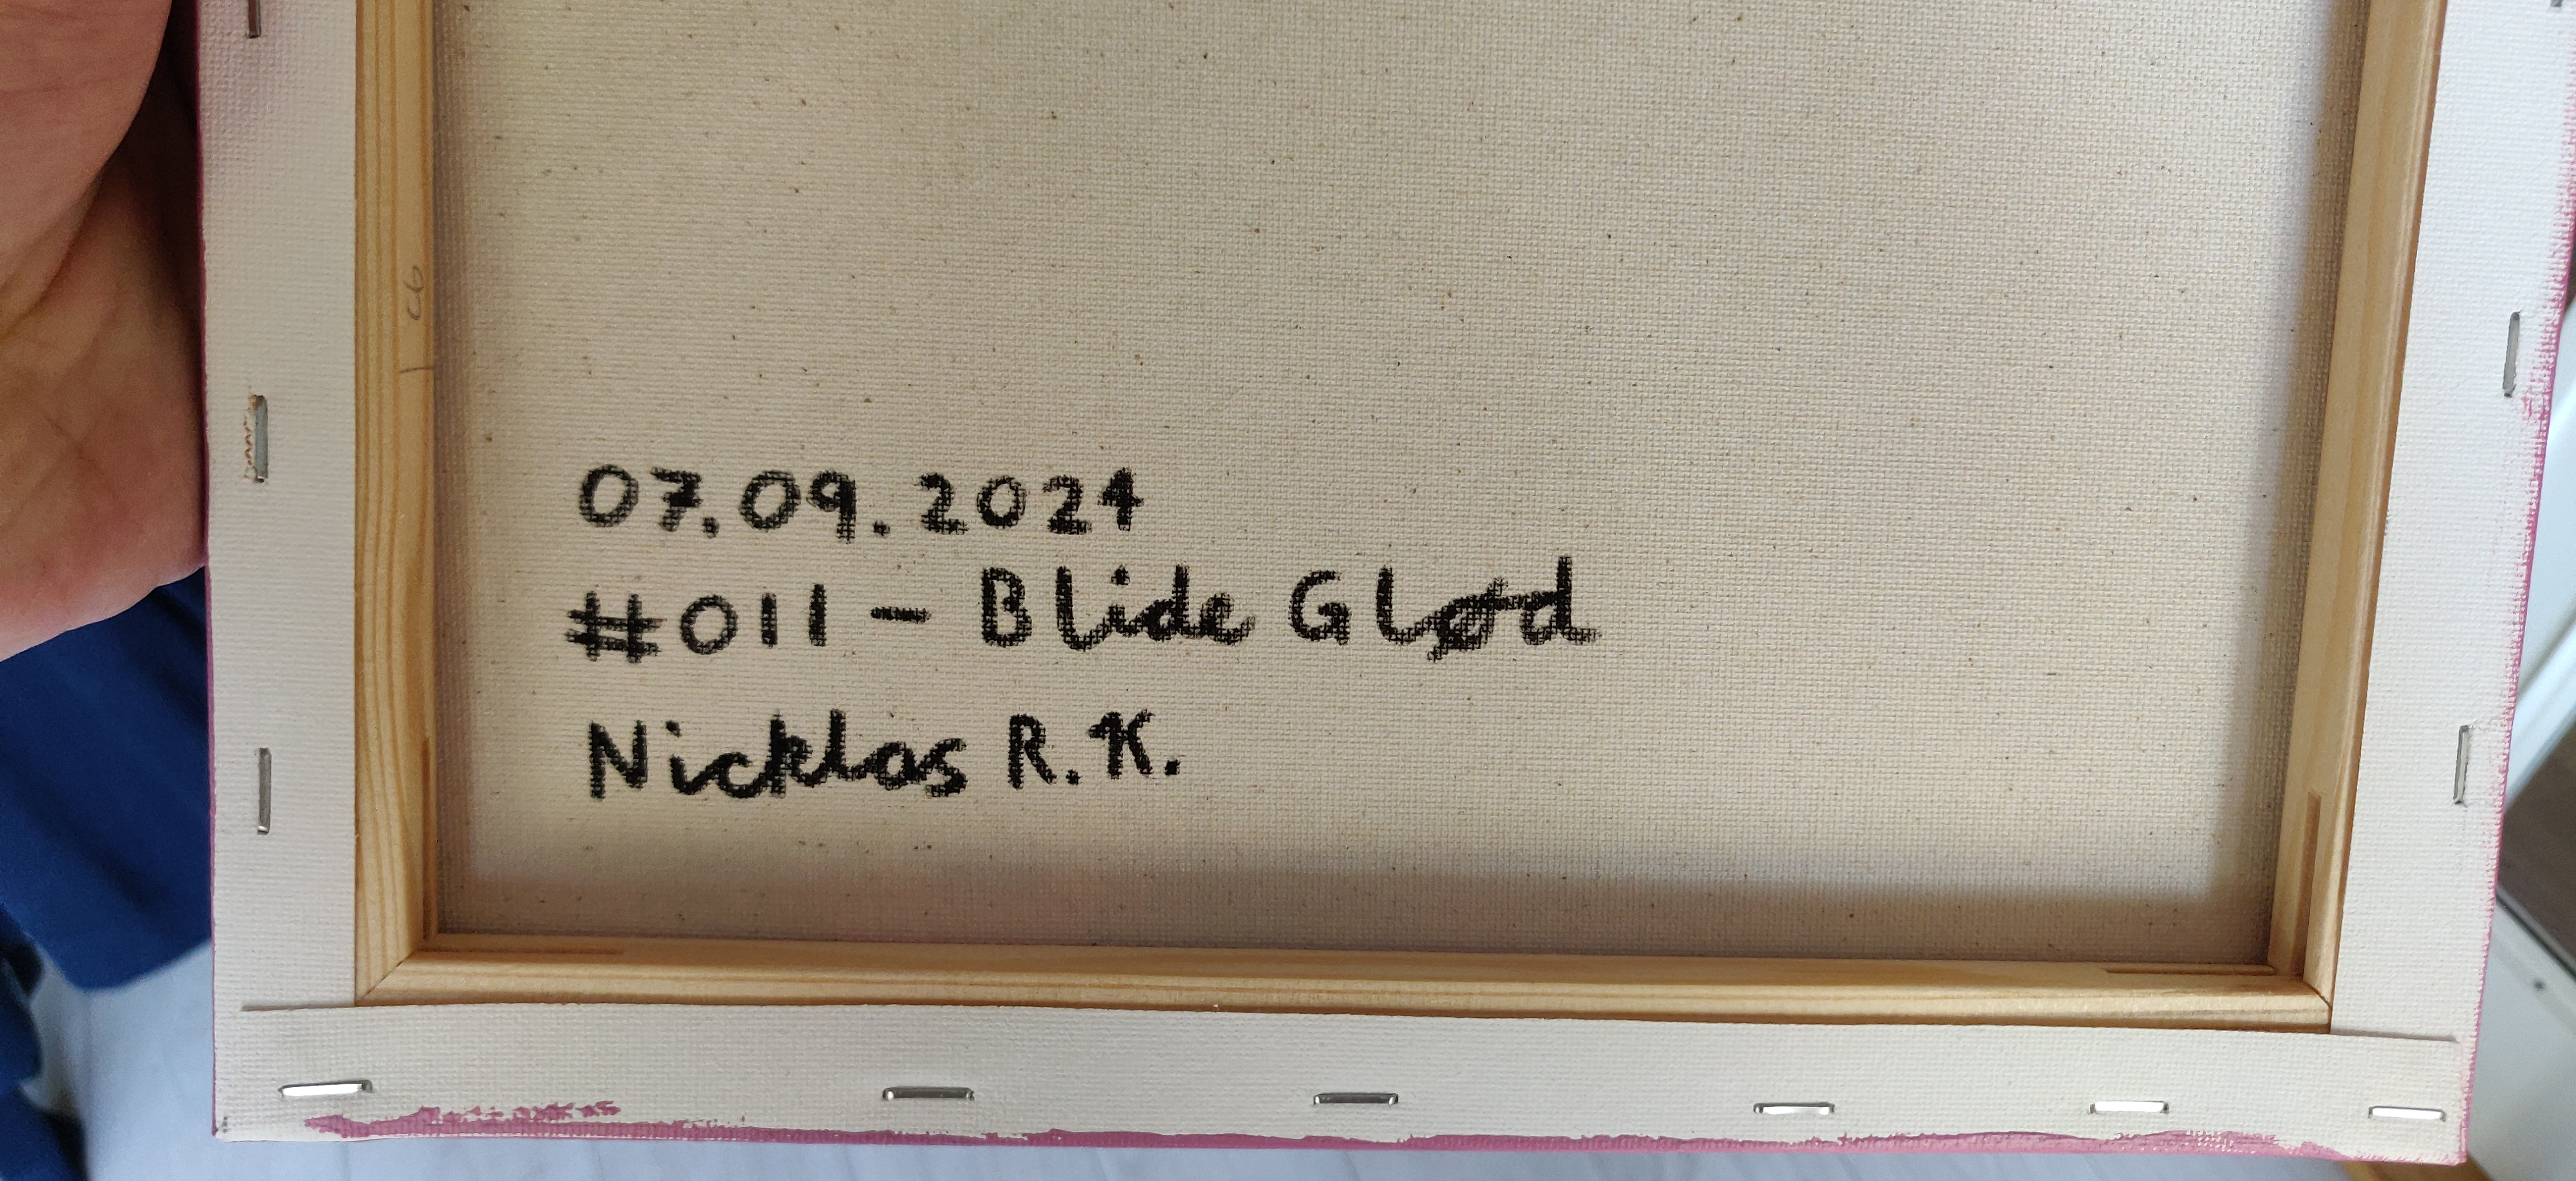 07.09.2024
#011 - Blide Glød
Nicklas R.K.